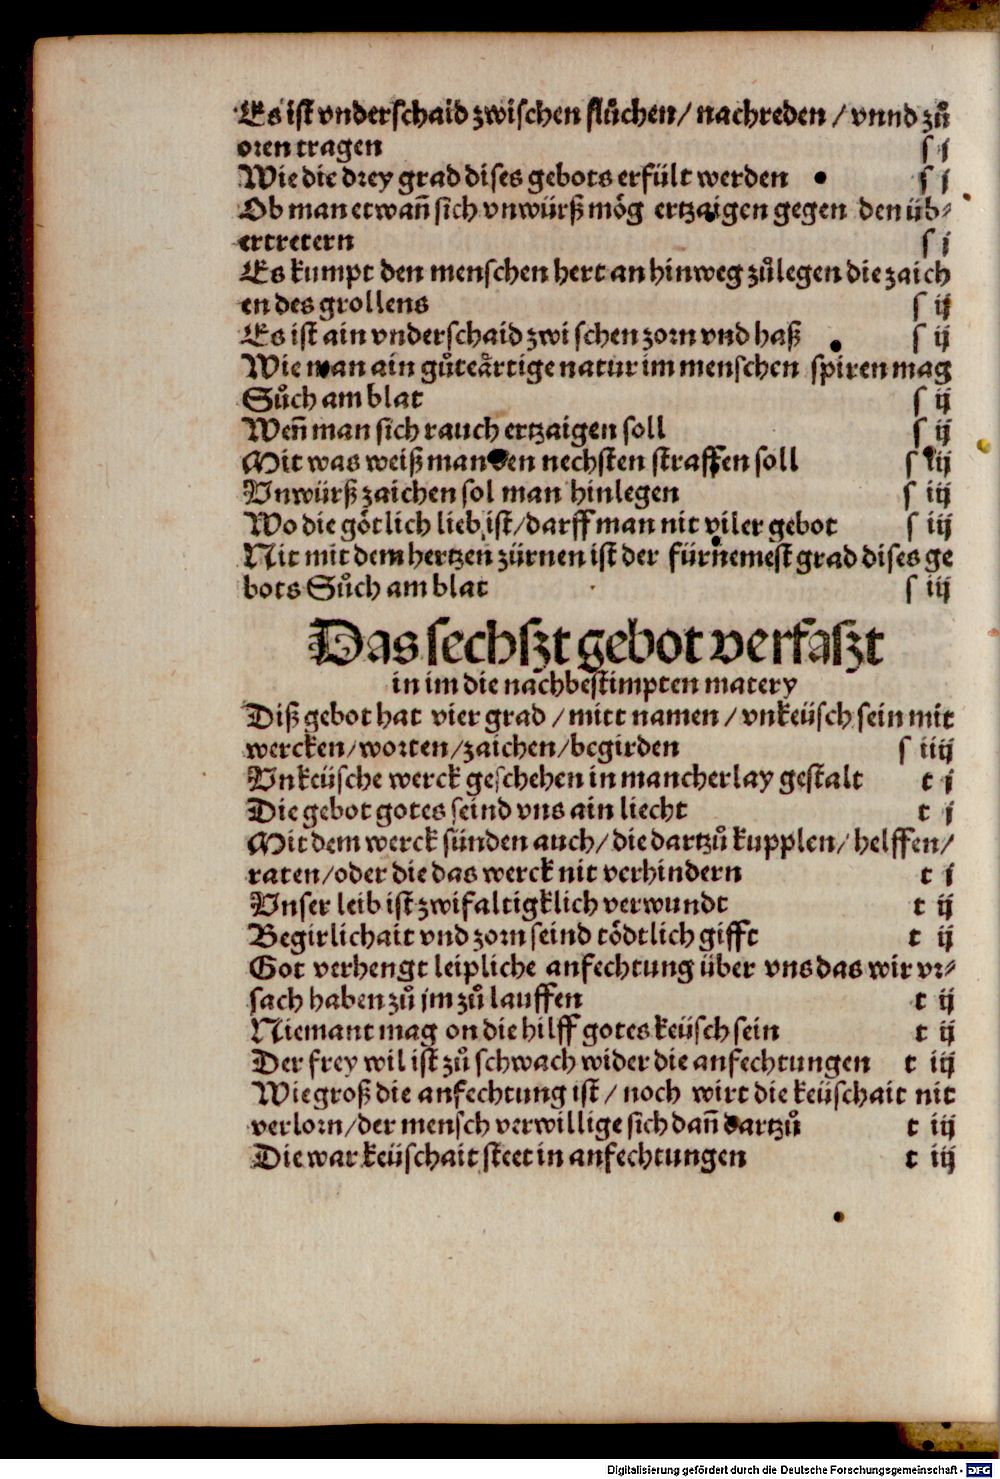 Es ist vnderschaid zwischen flůchen/ nachreden / vnnd zů
oren tragen s j
Wie die drey grad dises gebots erfült werden s j
Ob man etwañ sich vnwürß mög ertzaigen gegen den üb⸗
ertretern s j
Es kumpt den menschen hert an hinweg zůlegen die zaich
en des grollens s ij
Es ist ain vnderschaid zwi schen zorn vnd haß s ij
Wie man ain gůteårtige natur im menschen spiren mag
Sůch am blat s ij
Weñ man sich rauch ertzaigen soll s ij
Mit was weiß man den nechsten straffen soll s iij
Vnwürß zaichen sol man hinlegen s iij
Wo die götlich lieb ist/darff man nit viler gebot s iij
Nit mit dem hertzen zürnen ist der fürnemest grad dises ge
bots Sůch am blat s iij
Das sechßzt gebot verfaßzt
in im die nachbestimpten matery
Diß gebot hat vier grad / mitt namen / vnkeüsch sein mit
wercken/worten/zaichen/begirden s iiij
Vnkeüsche werck geschehen in mancherlay gestalt t j
Die gebot gotes seind vns ain liecht t j
Mit dem werck sünden auch/ die dartzů kupplen/ helffen/
raten/oder die das werck nit verhindern t j
Vnser leib ist zwifaltigklich verwundt t ij
Begirlichait vnd zorn seind tödtlich gifft t ij
Got verhengt leipliche anfechtung über vns das wir vr⸗
sach haben zů jm zů lauffen t ij
Niemant mag on die hilff gotes keüsch sein t ij
Der frey wil ist zů schwach wider die anfechtungen t iij
Wie groß die anfechtung ist / noch wirt die keüschait nit
verlorn/der mensch verwillige sich dañ dartzů t iij
Die war keüschait steet in anfechtungen t iij
Digitalisierung gefördert durch die Deutsche Forschungsgemeinschaft - DFG